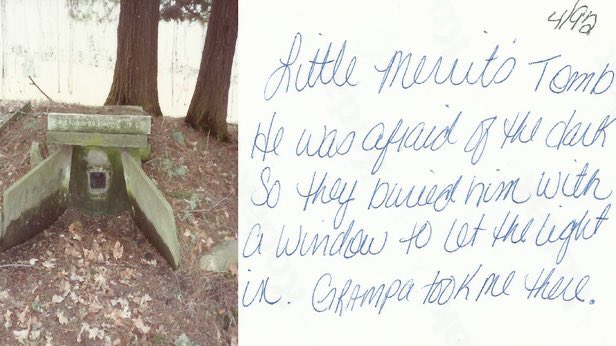 4/92
Little Merrit's Tomb
He was afraid of the dark
So they buried him with
a window to let the light
in. GRAMPA took me there.